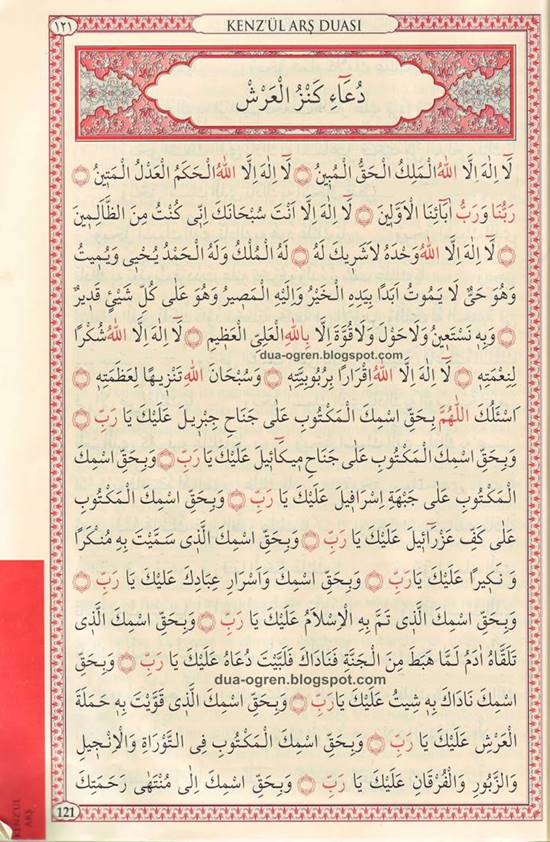 ١٢١
KENZ'ÜL ARŞ DUASI
دُعَٓاءِ كَنْزُ الْعَرْشِ
لَٓا اِلٰهَ اِلَّا اللّٰهُ الْمَلِكُ الْحَقُّ الْمُبٖينُ ۞ لَٓا اِلٰهَ اِلَّا اللّٰهُ الْحَكَمُ الْعَدْلُ الْمَتٖينُ ۞
رَبُّنَا وَرَبُّ اٰبَٓائِنَا الْاَوَّلٖينَ ۞ لَٓا اِلٰهَ اِلَّا اَنْتَ سُبْحَانَكَ اِنّٖى كُنْتُ مِنَ الظَّالِمٖينَ
۞ لَٓا اِلٰهَ اِلَّا اللّٰهُ وَحْدَهُ لَاشَرٖيكَ لَهُ ۞ لَهُ الْمُلْكُ وَلَهُ الْحَمْدُ يُحْيٖى وَيُمٖيتُ
وَهُوَ حَىٌّ لَا يَمُوتُ اَبَدًا بِيَدِهِ الْخَيْرُ وَاِلَيْهِ الْمَصٖيرُ وَهُوَ عَلٰى كُلِّ شَيْئٍ قَدٖيرٌ
۞ وَبِهٖ نَسْتَعٖينُ وَلَاحَوْلَ وَلَاقُوَّةَ اِلَّا بِاللّٰهِ الْعَلِىِّ الْعَظٖيمِ ۞ لَٓا اِلٰهَ اِلَّا اللّٰهُ شُكْرًا
dua-ogren.blogspot.com
لِنِعْمَتِهٖ ۞ لَٓا اِلٰهَ اِلَّا اللّٰهُ اِقْرَارًا بِرُبُوبِيَّتِهٖ ۞ وَسُبْحَانَ اللّٰهِ تَنْزٖيهًا لِعَظَمَتِهٖ ۞
اَسْئَلُكَ اللّٰهُمَّ بِحَقِّ اسْمِكَ الْمَكْتُوبِ عَلٰى جَنَاحِ جِبْرٖيلَ عَلَيْكَ يَا رَبِّ ۞
وَبِحَقِّ اسْمِكَ الْمَكْتُوبِ عَلٰى جَنَاحِ مٖيكَٓائٖيلَ عَلَيْكَ يَا رَبِّ ۞ وَبِحَقِّ اسْمِكَ
الْمَكْتُوبِ عَلٰى جَبْهَةِ اِسْرَافٖيلَ عَلَيْكَ يَا رَبِّ ۞ وَبِحَقِّ اسْمِكَ الْمَكْتُوبِ
عَلٰى كَفِّ عَزْرَٓائٖيلَ عَلَيْكَ يَا رَبِّ ۞ وَبِحَقِّ اسْمِكَ الَّذٖى سَمَّيْتَ بِهٖ مُنْكَرًا
وَ نَكٖيرًا عَلَيْكَ يَارَبِّ ۞ وَبِحَقِّ اسْمِكَ وَاَسْرَارِ عِبَادِكَ عَلَيْكَ يَا رَبِّ ۞
وَبِحَقِّ اسْمِكَ الَّذٖى تَمَّ بِهِ الْاِسْلَامُ عَلَيْكَ يَا رَبِّ ۞ وَبِحَقِّ اسْمِكَ الَّذٖى
تَلَقَّاهُ اٰدَمُ لَمَّا هَبَطَ مِنَ الْجَنَّةِ فَنَادَاكَ فَلَبَّيْتَ دُعَاهُ عَلَيْكَ يَا رَبِّ ۞ وَبِحَقِّ
dua-ogren.blogspot.com
اسْمِكَ نَادَاكَ بِهٖ شٖيتُ عَلَيْكَ يَارَبِّ ۞ وَبِحَقِّ اسْمِكَ الَّذٖى قَوَّيْتَ بِهٖ حَمَلَةَ
الْعَرْشِ عَلَيْكَ يَا رَبِّ ۞ وَبِحَقِّ اسْمِكَ الْمَكْتُوبِ فِى التَّوْرَاةِ وَالْاِنْجٖيلِ
وَالزَّبُورِ وَالْفُرْقَانِ عَلَيْكَ يَا رَبِّ ۞ وَبِحَقِّ اسْمِكَ اِلٰى مُنْتَهٰى رَحْمَتِكَ
121